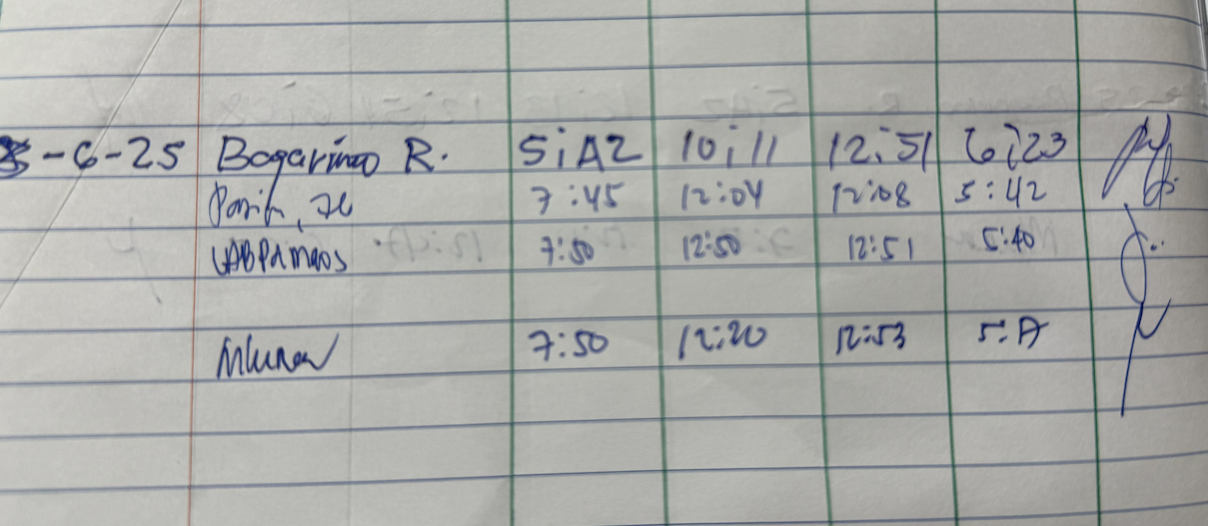 5-6-25 Bogarino R. 5:A2 10:11 12:51 6:23
7:45 12:04 12:08 5:42
7:50 12:50 12:51 5:40
7:50 12:20 12:53 5:A